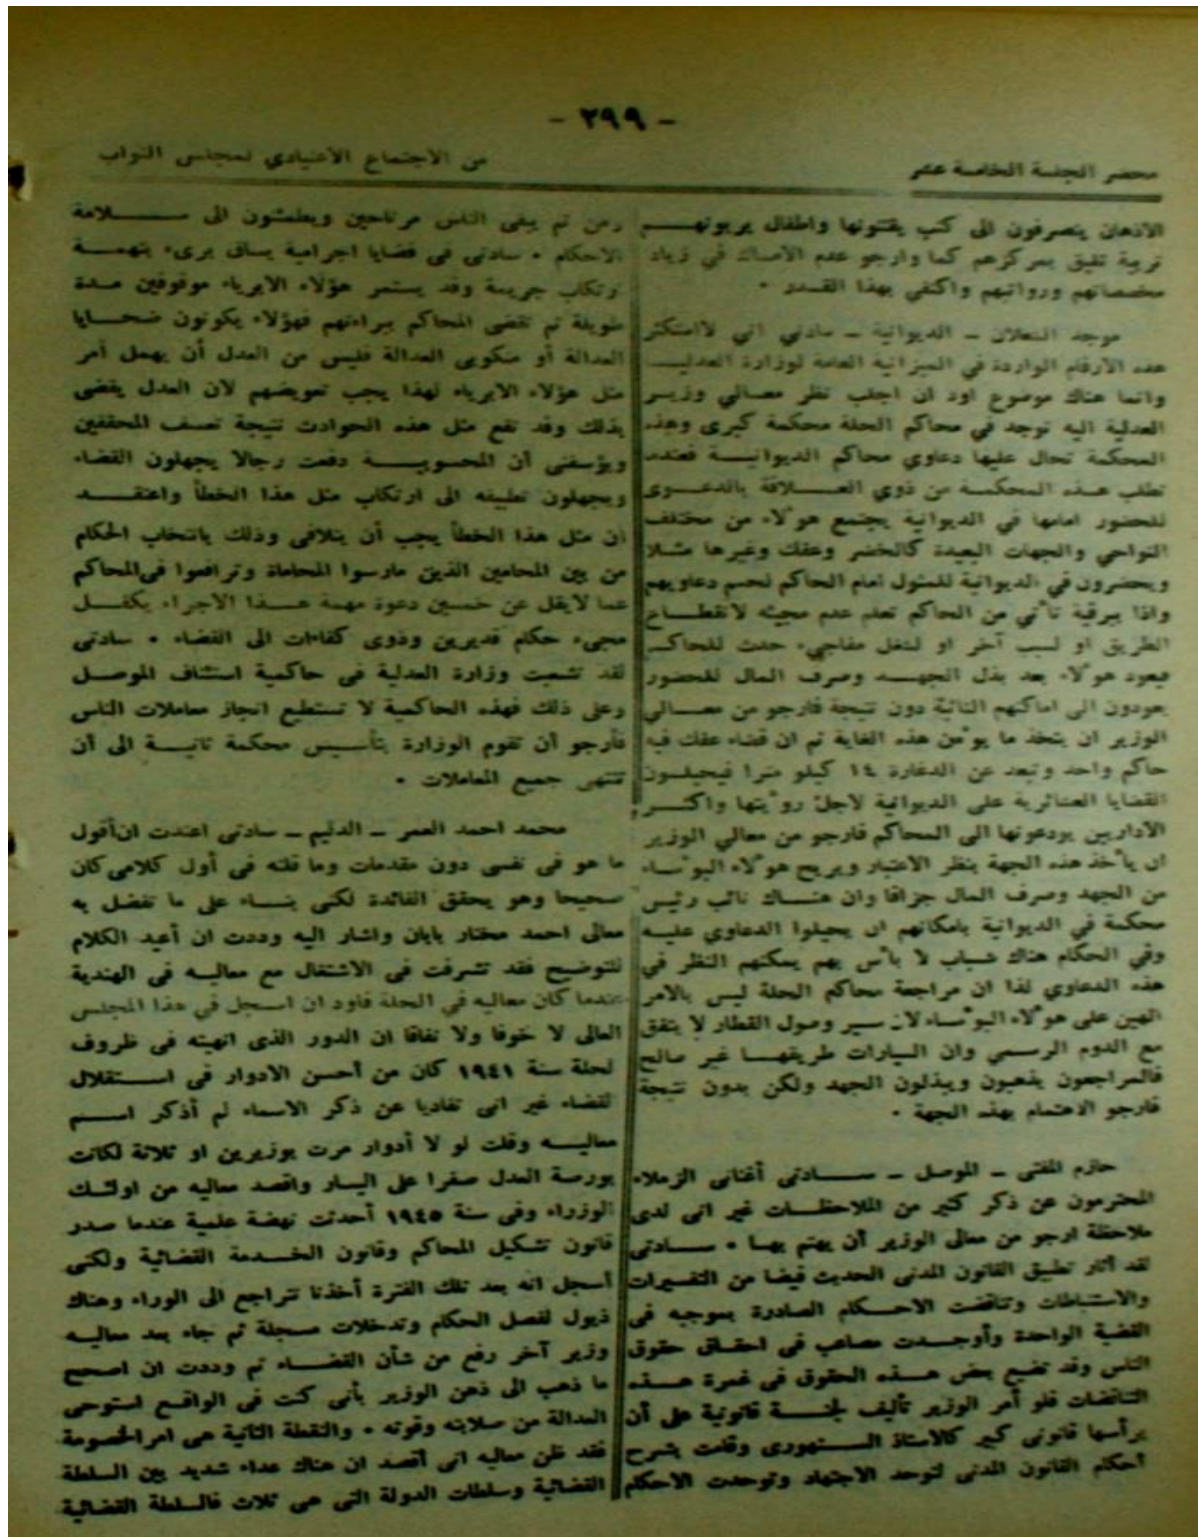 - ٣٩٩ -
محضر الجلسة الخامسة عشر
من الاجتماع الاعتيادي لمجلس النواب
الاذهان ينصرفون الى كتب يقتنونها واطفال يربونهم
تربية تليق بمركزهم كما وارجو عدم الامساك في زياد
مخصصاتهم ورواتبهم واكتفي بهذا القدر ٠
موجد الشعلان ــ الديوانية ــ سادتي اني لااستكثر
هذه الارقام الواردة في الميزانية العامة لوزارة العدليــة
وانما هناك موضوع اود ان اجلب نظر معـالي وزيـر
العدلية اليه توجد في محاكم الحلة محكمة كبرى وهذه
المحكمة تحال عليها دعاوي محاكم الديوانيـــة فعندما
تطلب هــذه المحكمــة من ذوي العــــلاقة بالدعــوى
للحضور امامها في الديوانية يجتمع هو ُلاء من مختلف
النواحي والجهات البعيدة كالخضر وعفك وغيرها مثـلا
ويحضرون في الديوانية للمثول امام الحاكم لحسم دعاويهم
واذا ببرقية تأتي من الحاكم تعلم عدم مجيئه لانقطـــاع
الطريق او لسبب آخر او لشغل مفاجيء حدث للحاكـم
فيعود هو ُلاء بعد بذل الجهــد وصرف المال للحضور
يعودون الى اماكنهم النائية دون نتيجة فارجو من معـــالي
الوزير ان يتخذ ما يو ُمن هذه الغاية ثم ان قضاء عفك فيه
حاكم واحد وتبعد عن الدغارة ١٤ كيلو مترا فيحيلـــون
القضايا العشائرية على الديوانية لاجل رو ُيتها واكثـــر
الاداريين يودعونها الى المحاكم فارجو من معالي الوزير
ان يأخذ هذه الجهة بنظر الاعتبار ويريح هو ُلاء البو ُساء
من الجهد وصرف المال جزافا وان هنـــاك نائب رئيس
محكمة في الديوانية بامكانهم ان يحيلوا الدعاوي عليــه
وفي الحكام هناك شباب لا بأس بهم يمكنهم النظر في
هذه الدعاوي لذا ان مراجعة محاكم الحلة ليس بالامر
الهين على هو ُلاء البو ُساء لان سير وصول القطار لا يتفق
مع الدوم الرسمي وان السيارات طريقهـــا غير صالح
فالمراجعون يذهبون ويبذلون الجهد ولكن بدون نتيجة
فارجو الاهتمام بهذه الجهة ٠
حازم المفتي ــ الموصل ــ ســـادتى أغنانى الزملاء
المحترمون عن ذكر كثير من الملاحظـــات غير انى لدى
ملاحظة ارجو من معالى الوزير أن يهتم بهـا ٠ ســـادتى
لقد أثار تطبيق القانون المدنى الحديث فيضا من التفسيرات
والاستنباطات وتناقضت الاحـــكام الصادرة بموجبه فى
القضية الواحدة وأوجـــدت مصاعب فى احقـاق حقوق
الناس وقد تضيع بعض هـــذه الحقوق فى غمرة هــذه
التناقضات فلو أمر الوزير بتأليف لجنـــة قانونية على أن
يرأسها قانونى كبير كالاستاذ الســـنهورى وقامت بشرح
أحكام القانون المدنى لتوحد الاجتهاد وتوحدت الاحكام
ومن ثم يبقى الناس مرتاحين ويطمئنون الى ســـــلامة
الاحكام ٠ سادتى فى قضايا اجرامية يساق برىء بتهمــة
ارتكاب جريمة وقد يستمر هؤلاء الابرياء موقوفين مـدة
طويلة ثم تقضى المحاكم ببراءتهم فهؤلاء يكونون ضحـايا
العدالة أو منكوبى العدالة فليس من العدل أن يهمل أمر
مثل هؤلاء الابرياء لهذا يجب تعويضهم لان العدل يقضى
بذلك وقد تقع مثل هذه الحوادث نتيجة تعسف المحققين
ويؤسفنى أن المحسوبيـــة دفعت رجالا يجهلون القضاء
ويجهلون تطبيقه الى ارتكاب مثل هذا الخطأ واعتقــد
ان مثل هذا الخطأ يجب أن يتلافى وذلك بانتخاب الحكام
من بين المحامين الذين مارسوا المحاماة وترافعوا فى المحاكم
عما لايقل عن خمسين دعوة مهمة هـــذا الاجراء يكفـل
مجىء حكام قديرين وذوى كفاءات الى القضاء ٠ سادتى
لقد تشعبت وزارة العدلية فى حاكمية استئناف الموصل
وعلى ذلك فهذه الحاكمية لا تستطيع انجاز معاملات الناس
فأرجو أن تقوم الوزارة بتأسيس محكمة ثانيــة الى أن
تنتهى جميع المعاملات ٠
محمد احمد العمر ــ الدليم ــ سادتى اعتدت ان أقول
ما هو فى نفسى دون مقدمات وما قلته فى أول كلامى كان
صحيحا وهو يحقق الفائدة لكنى بنـــاء على ما تفضل به
معالى احمد مختار بابان واشار اليه وددت ان أعيد الكلام
للتوضيح فقد تشرفت فى الاشتغال مع معاليــه فى الهندية
عندما كان معاليه في الحلة فاود ان اسجل في هذا المجلس
العالى لا خوفا ولا نفاقا ان الدور الذى انهيته فى ظروف
لحلة سنة ١٩٤١ كان من أحسن الادوار فى اســـتقلال
لقضاء غير انى تفاديا عن ذكر الاسماء لم أذكر اســـم
معاليــه وقلت لو لا أدوار مرت بوزيرين او ثلاثة لكانت
بورصة العدل صفرا على اليسار واقصد معاليه من اولئـك
الوزراء وفى سنة ١٩٤٥ أحدثت نهضة علمية عندما صدر
قانون تشكيل المحاكم وقانون الخـــدمة القضائية ولكنى
أسجل انه بعد تلك الفترة أخذنا نتراجع الى الوراء وهناك
ذيول لفصل الحكام وتدخلات مسجلة ثم جاء بعد معاليــه
وزير آخر رفع من شأن القضـــاء ثم وددت ان اصحح
ما ذهب الى ذهن الوزير بأنى كنت فى الواقع استوحى
العدالة من صلابته وقوته ٠ والنقطة الثانية هى امر الخصومة
فقد ظن معاليه انى أقصد ان هناك عداء شديد بين السلطة
القضائية وسلطات الدولة التى هى ثلاث فالسلطة القضائية